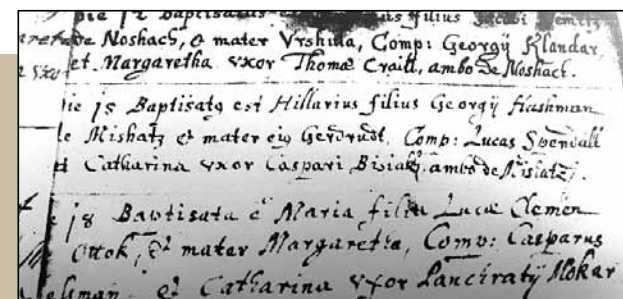 Die 12 Baptisatus e us filius Jacobi
de Noshach, & mater Vrshula, Comp: Georgÿ Klandar,
et Margaretha vxor Thomæ Craill, ambo de Noshach.
Die 15 Baptisatq est Hillarius filius Georgÿ Hashman
de Mishatz et mater eiq Gerdrudt, Comp: Lucas Spendall
et Catharina vxor Caspari Bisiak, ambo de Mishatz.
18 Baptisata e Maria filia Lucæ Clemen
Ottok, et mater Margaretha, Comp: Casparus
et Catharina vxor Panchratÿ Mokar